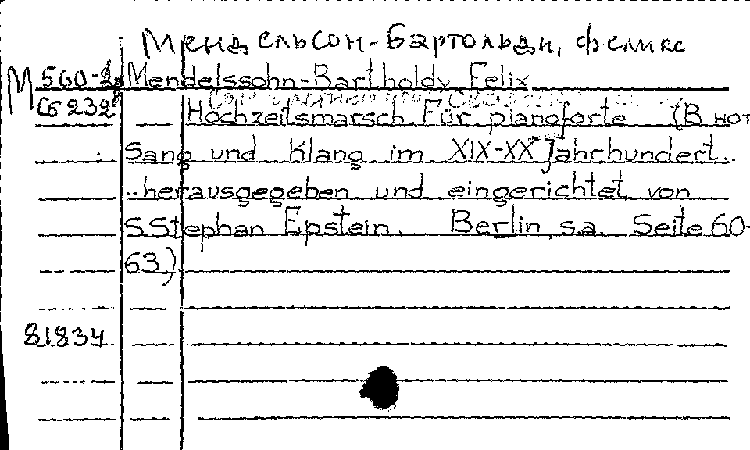 Мендельсон-Бартольди, Феликс
М 560-2а Mendelssohn-Bartholdy Felix
Сб 232 Hochzeitsmarsch Für pianoforte (В нот
Sang und Klang im XIX-XX Jahrhundert..
..herausgegeben und eingerichtet von
S.Stephan Epstein. Berlin, s.a. Seite 60-
63)
81834